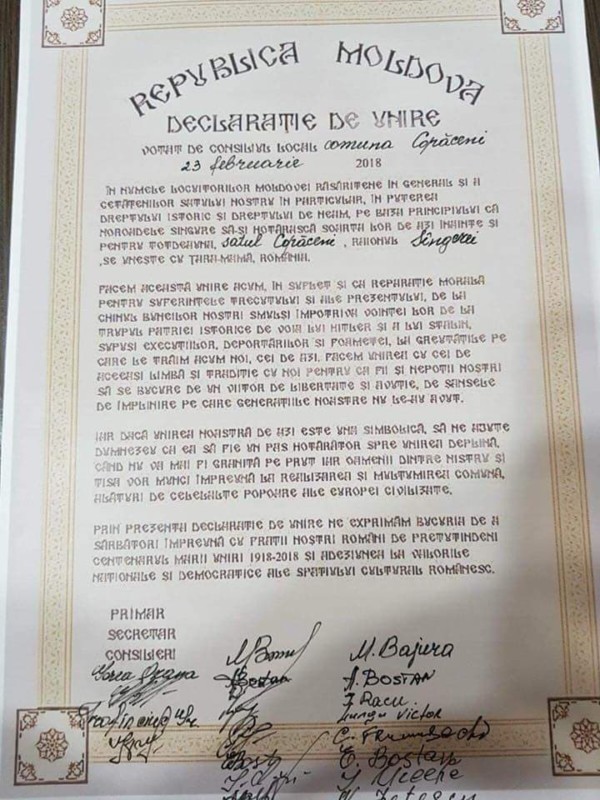 REPUBLICA MOLDOVA
DECLARAȚIE DE UNIRE
VOTAT DE CONSILIUL LOCAL comuna Copăceni
23 februarie 2018
ÎN NUMELE LOCUITORILOR MOLDOVEI RĂSĂRITENE ÎN GENERAL ȘI A
CETĂȚENILOR SATULUI NOSTRU ÎN PARTICULAR, ÎN PUTEREA
DREPTULUI ISTORIC ȘI DREPTULUI DE NEAM, PE BAZA PRINCIPIULUI CĂ
NOROADELE SINGURE SĂ-ȘI HOTĂRASCĂ SOARTA LOR DE AZI ÎNAINTE ȘI
PENTRU TOTDEAUNA, satul Copăceni, RAIONUL Sîngerei
,SE UNEȘTE CU ȚARA-MAMĂ, ROMÂNIA.
FACEM ACEASTĂ UNIRE ACUM, ÎN SUFLET ȘI CA REPARAȚIE MORALĂ
PENTRU SUFERINȚELE TRECUTULUI ȘI ALE PREZENTULUI, DE LA
CHINUL BUNEILOR NOȘTRI SMULȘI ÎMPOTRIVA VOINȚEI LOR DE LA
TRUPUL PATRIEI ISTORICE DE VOIA LUI HITLER ȘI A LUI STALIN,
SUPUȘI EXECUȚIILOR, DEPORTĂRILOR ȘI FOAMETEI, LA GREUTĂȚILE PE
CARE LE TRĂIM ACUM NOI, CEI DE AZI. FACEM UNIREA CU CEI DE
ACEEAȘI LIMBĂ ȘI TRADIȚIE CU NOI PENTRU CA FII ȘI NEPOȚII NOȘTRI
SĂ SE BUCURE DE UN VIITOR DE LIBERTATE ȘI AVUȚIE, DE ȘANSELE
DE ÎMPLINIRE PE CARE GENERAȚIILE NOASTRE NU LE-AU AVUT.
IAR DACĂ UNIREA NOASTRĂ DE AZI ESTE UNA SIMBOLICĂ, SĂ NE AJUTE
DUMNEZEU CA EA SĂ FIE UN PAS HOTĂRÂTOR SPRE UNIREA DEPLINĂ,
CÂND NU VA MAI FI GRANIȚĂ PE PRUT IAR OAMENII DINTRE NISTRU ȘI
TISA VOR MUNCI ÎMPREUNĂ LA REALIZAREA ȘI MULȚUMIREA COMUNĂ,
ALĂTURI DE CELELALTE POPOARE ALE EUROPEI CIVILIZATE.
PRIN PREZENTA DECLARAȚIE DE UNIRE NE EXPRIMĂM BUCURIA DE A
SĂRBĂTORI ÎMPREUNĂ CU FRAȚII NOȘTRI ROMÂNI DE PRETUTINDENI
CENTENARUL MARII UNIRI 1918-2018 ȘI ADEZIUNEA LA VALORILE
NAȚIONALE ȘI DEMOCRATICE ALE SPAȚIULUI CULTURAL ROMÂNESC.
PRIMAR
SECRETAR
CONSILIERI
M. Bajura
A. BOSTAN
J. Racu
Lungu Victor
E. Bostan